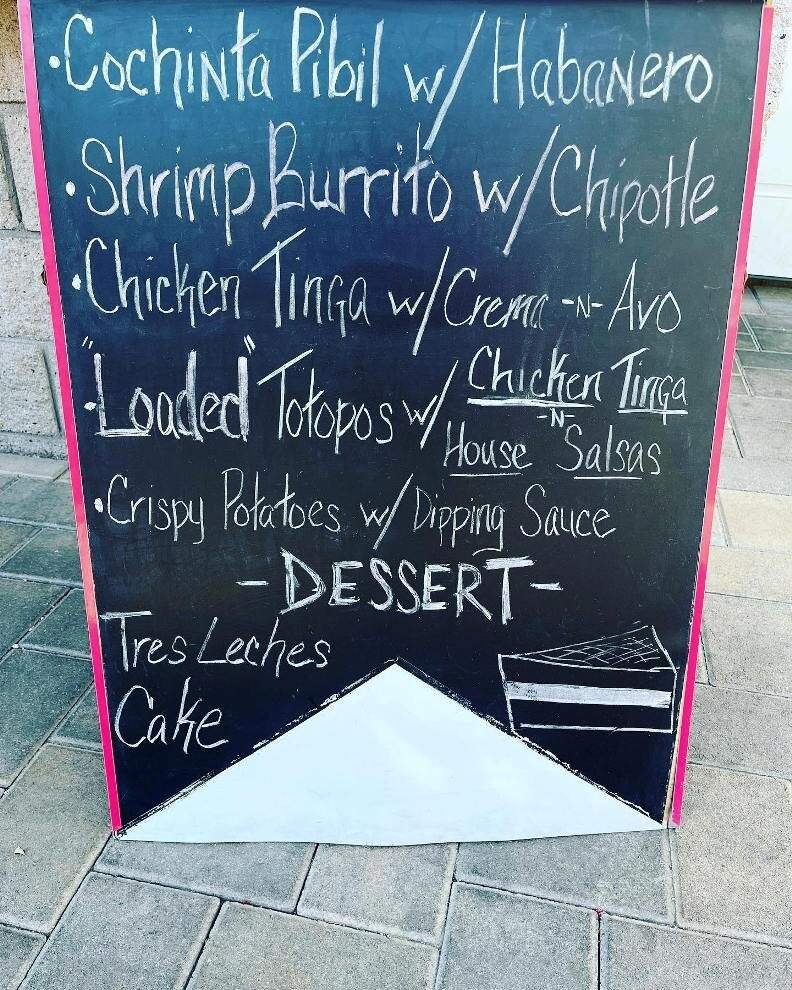 ·Cochinta Pibil w/ Habanero
·Shrimp Burrito w/ Chipotle
·Chicken Tinga w/ Crema -N- Avo
·"Loaded" Totopos w/ Chicken Tinga
-N-
House Salsas
·Crispy Potatoes w/ Dipping Sauce
-DESSERT-
Tres Leches
Cake